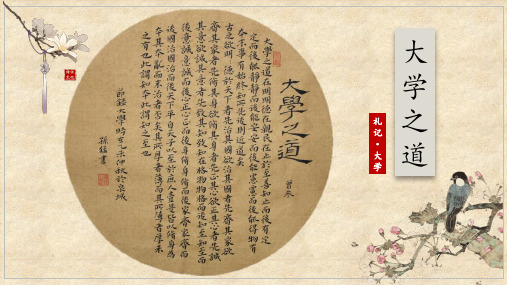 大学之道
礼记·大学
大學之道
曾參
大學之道在明明德在親民在止於至善知止而後有定
定而後能靜靜而後能安安而後能慮慮而後能得物有
本末事有終始知所先後則近道矣
古之欲明德於天下者先治其國欲治其國者先齊其家欲
齊其家者先脩其身欲脩其身者先正其心欲正其心者先誠
其意欲誠其意者先致其知致知在格物物格而後知至知至而
後意誠意誠而後心正心正而後身脩身脩而後家齊家齊而
後國治國治而後天下平自天子以至於庶人壹是皆以脩身為
本其本亂而末治者否矣其所厚者薄而其所薄者厚未
之有也此謂知本此謂知之至也
節錄大學時乙未仲秋於泉城